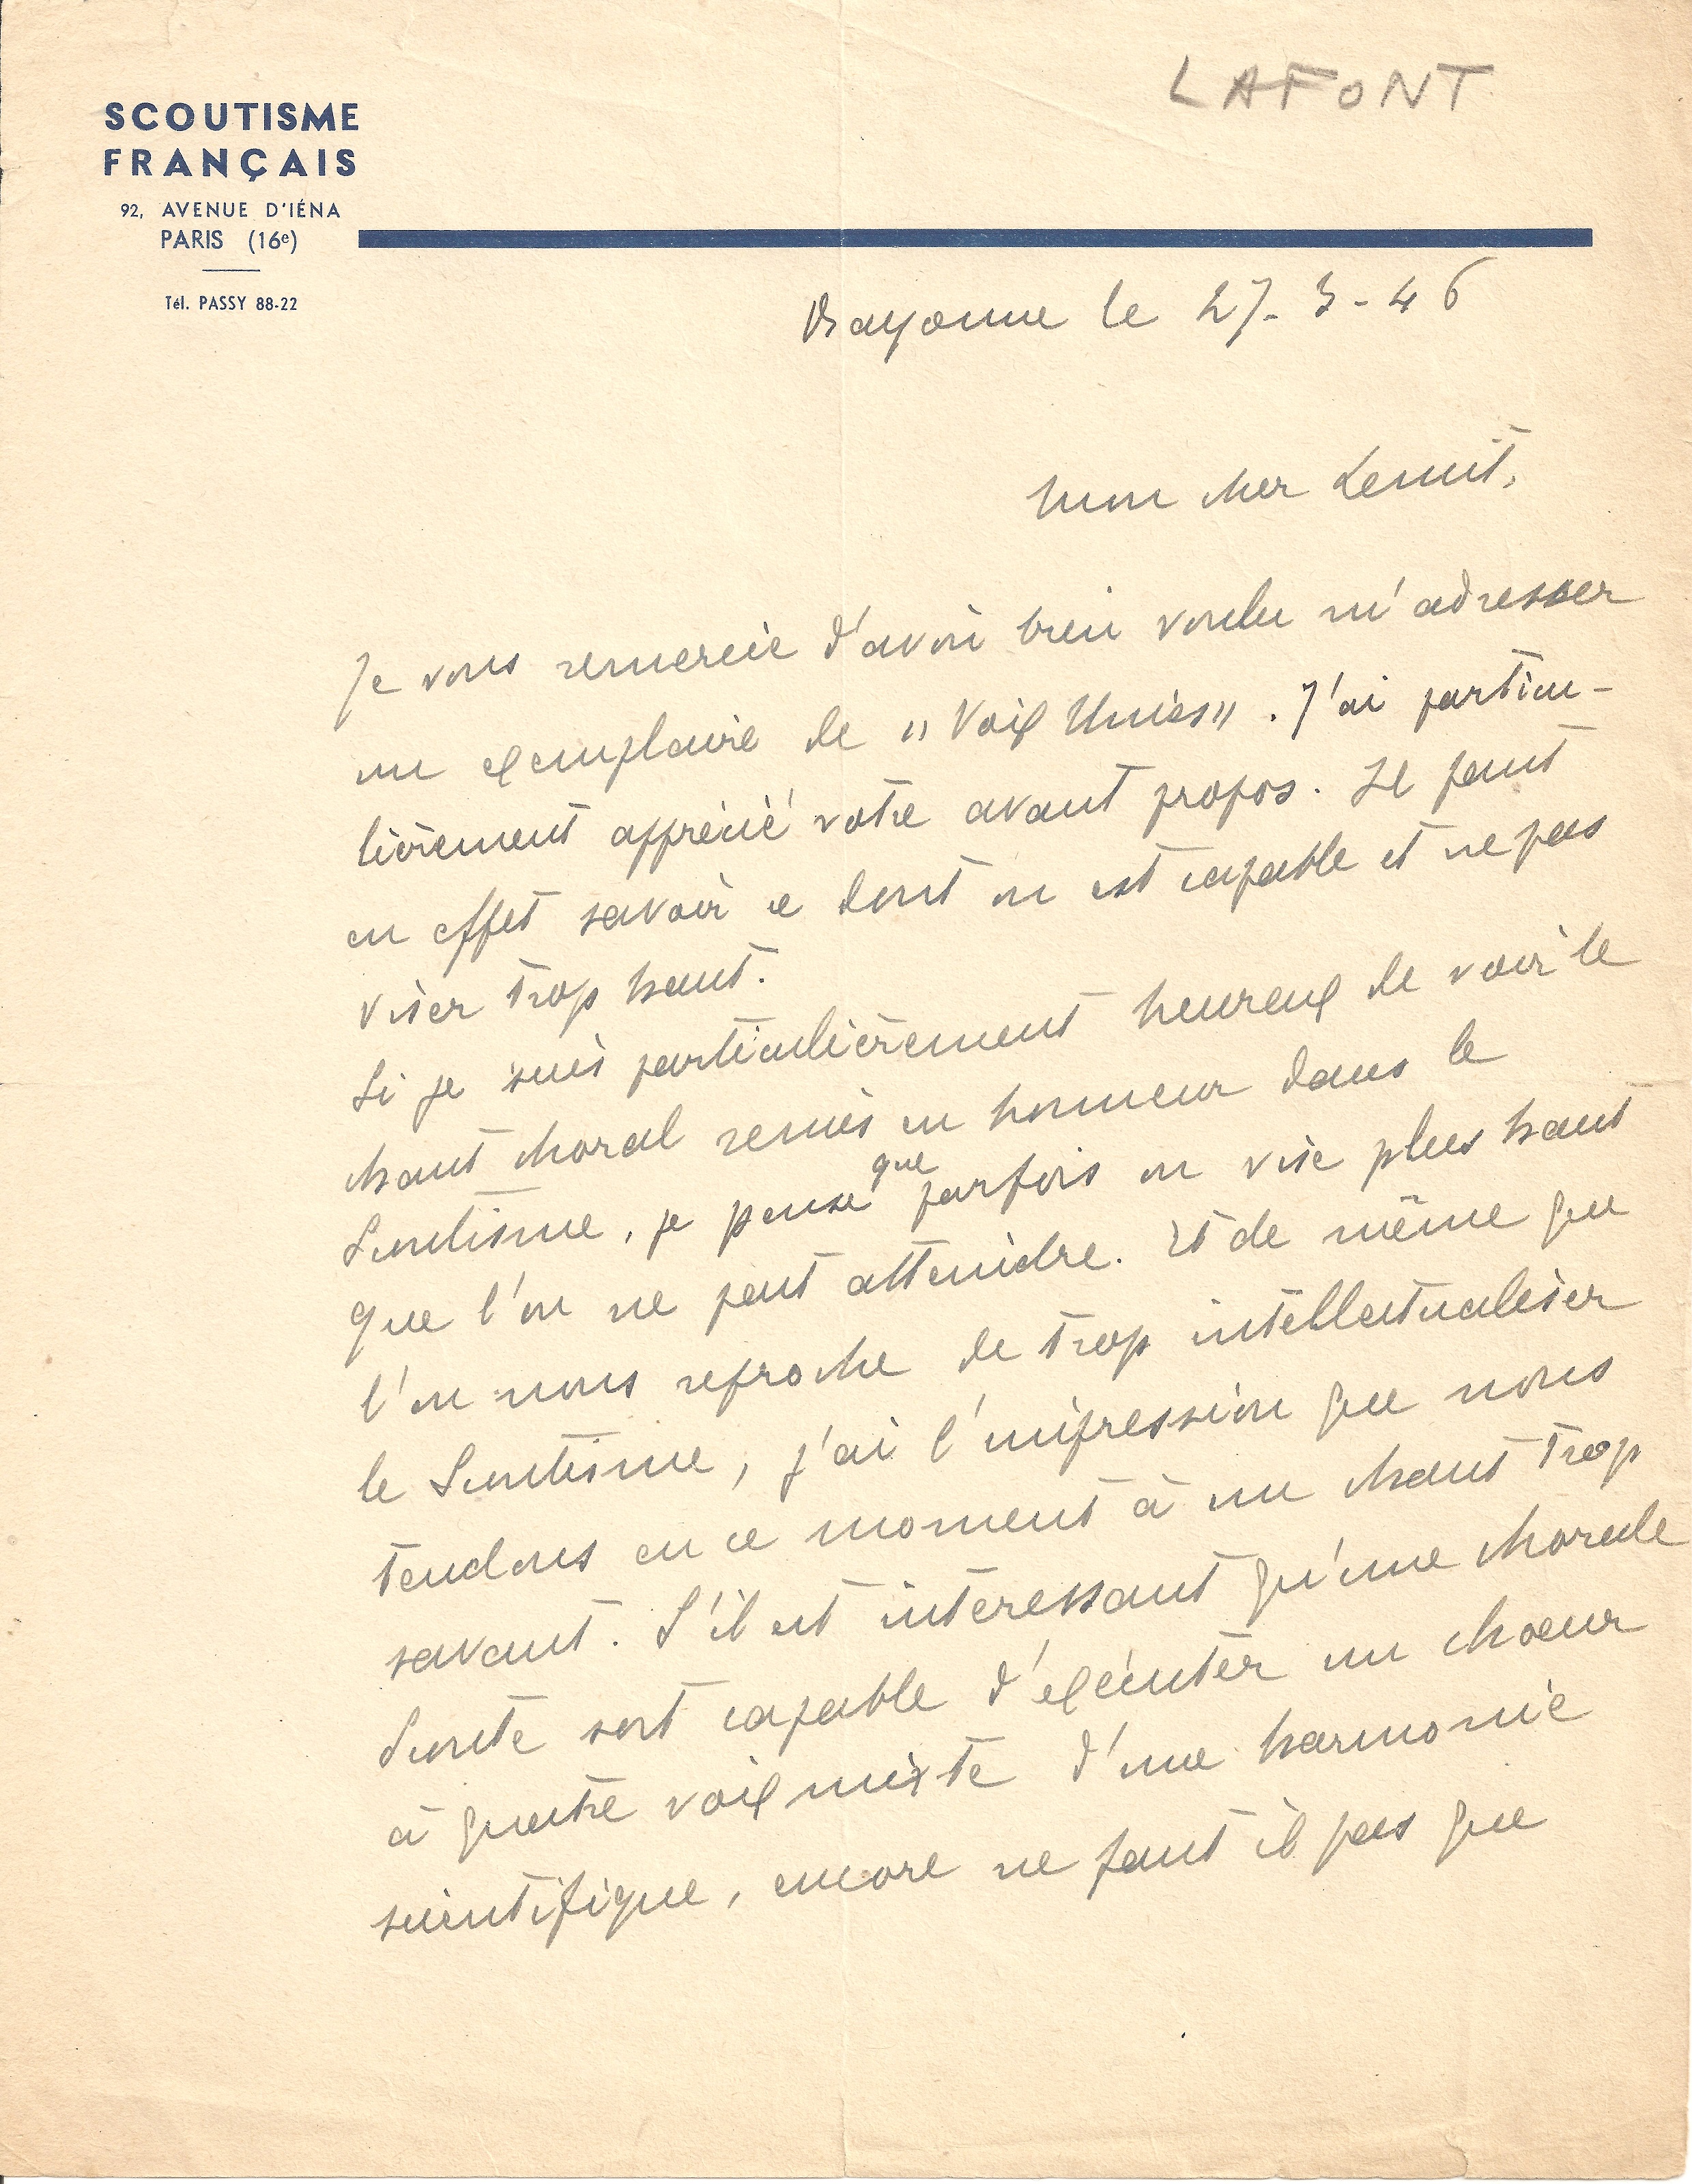 LAFONT
SCOUTISME
FRANÇAIS
92, AVENUE D'IÉNA
PARIS (16e)
Tél. PASSY 88-22
Bayonne le 27-3-46
Mon cher Lenoit,
Je vous remercie d'avoir bien voulu m'adresser
un exemplaire de "Voix Unies". J'ai particu-
lièrement apprécié votre avant propos. Il faut
en effet savoir ce dont on est capable et ne pas
viser trop haut.
Si je suis particulièrement heureux de voir le
chant choral remis en honneur dans le
Scoutisme, je pense que parfois on vise plus haut
que l'on ne peut atteindre. Et de même que
l'on nous reproche de trop intellectualiser
le Scoutisme, j'ai l'impression que nous
tendons en ce moment à un chant trop
savant. S'il est intéressant qu'une chorale
Scoute soit capable d'exécuter un choeur
à quatre voix mixte d'une harmonie
scientifique, encore ne faut il pas que